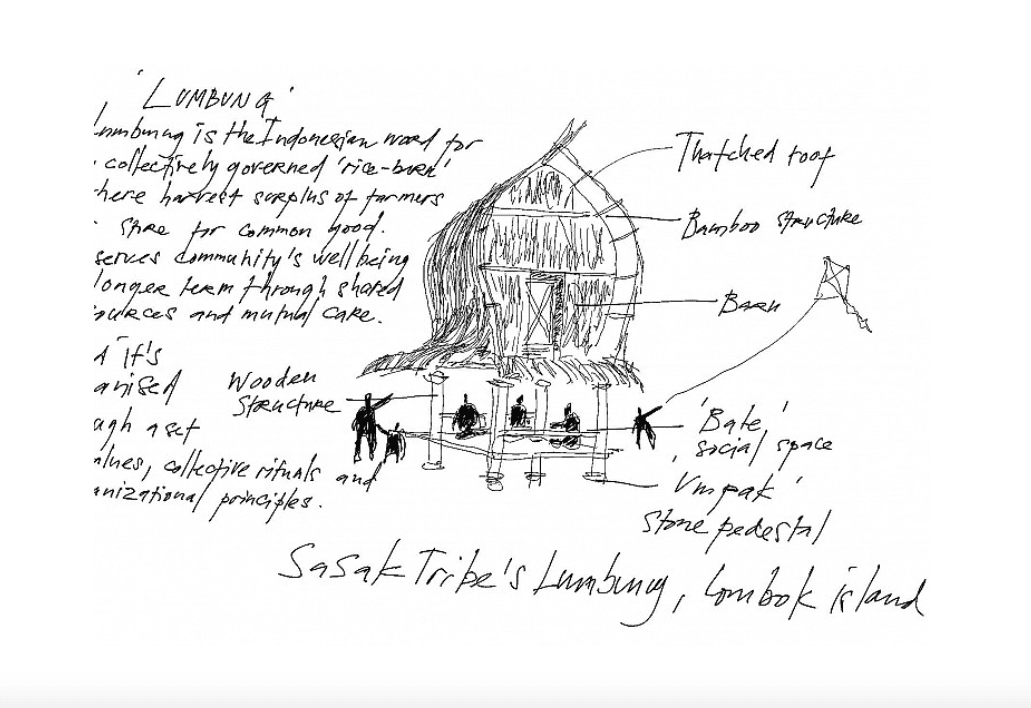 'LUMBUNG'
Lumbung is the Indonesian word for
collectively governed 'rice-barn'
here harvest surplus of farmers
store for common good.
serves community's wellbeing
longer term through shared
ources and mutual care.
it's
anised
ugh a set
alues, collective rituals and
anizational principles.
Thatched roof
Bamboo structure
Barn
Wooden
Structure
'Bale,'
social space
Umpak'
Stone pedestal
Sasak Tribe's Lumbung, Lombok island